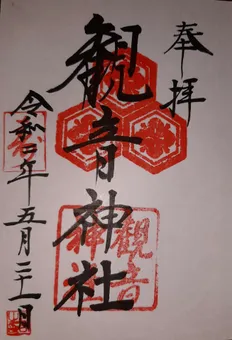 奉拝
観音神社
令和四年五月二十一日
観音
神社